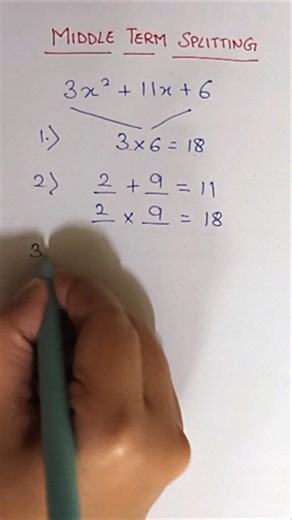 MIDDLE TERM SPLITTING
3x² + 11x + 6
1.) 3 × 6 = 18
2) 2 + 9 = 11
2 × 9 = 18
3